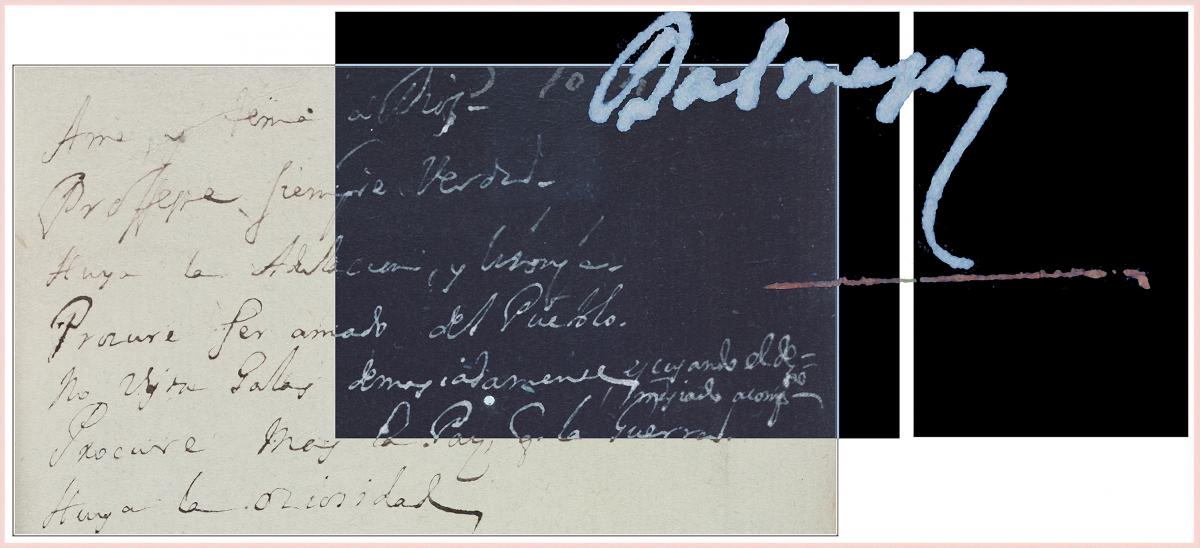 Ame y tema a Dios-
Proffese siempre Verdad.
Huya la Adulacion, y lisonja.
Procure ser amado del Pueblo.
No Vista Galas demasiadamente, escusando el de=
masiado
Procure mas la Paz, q. la Guerra.
Huya la oziosidad